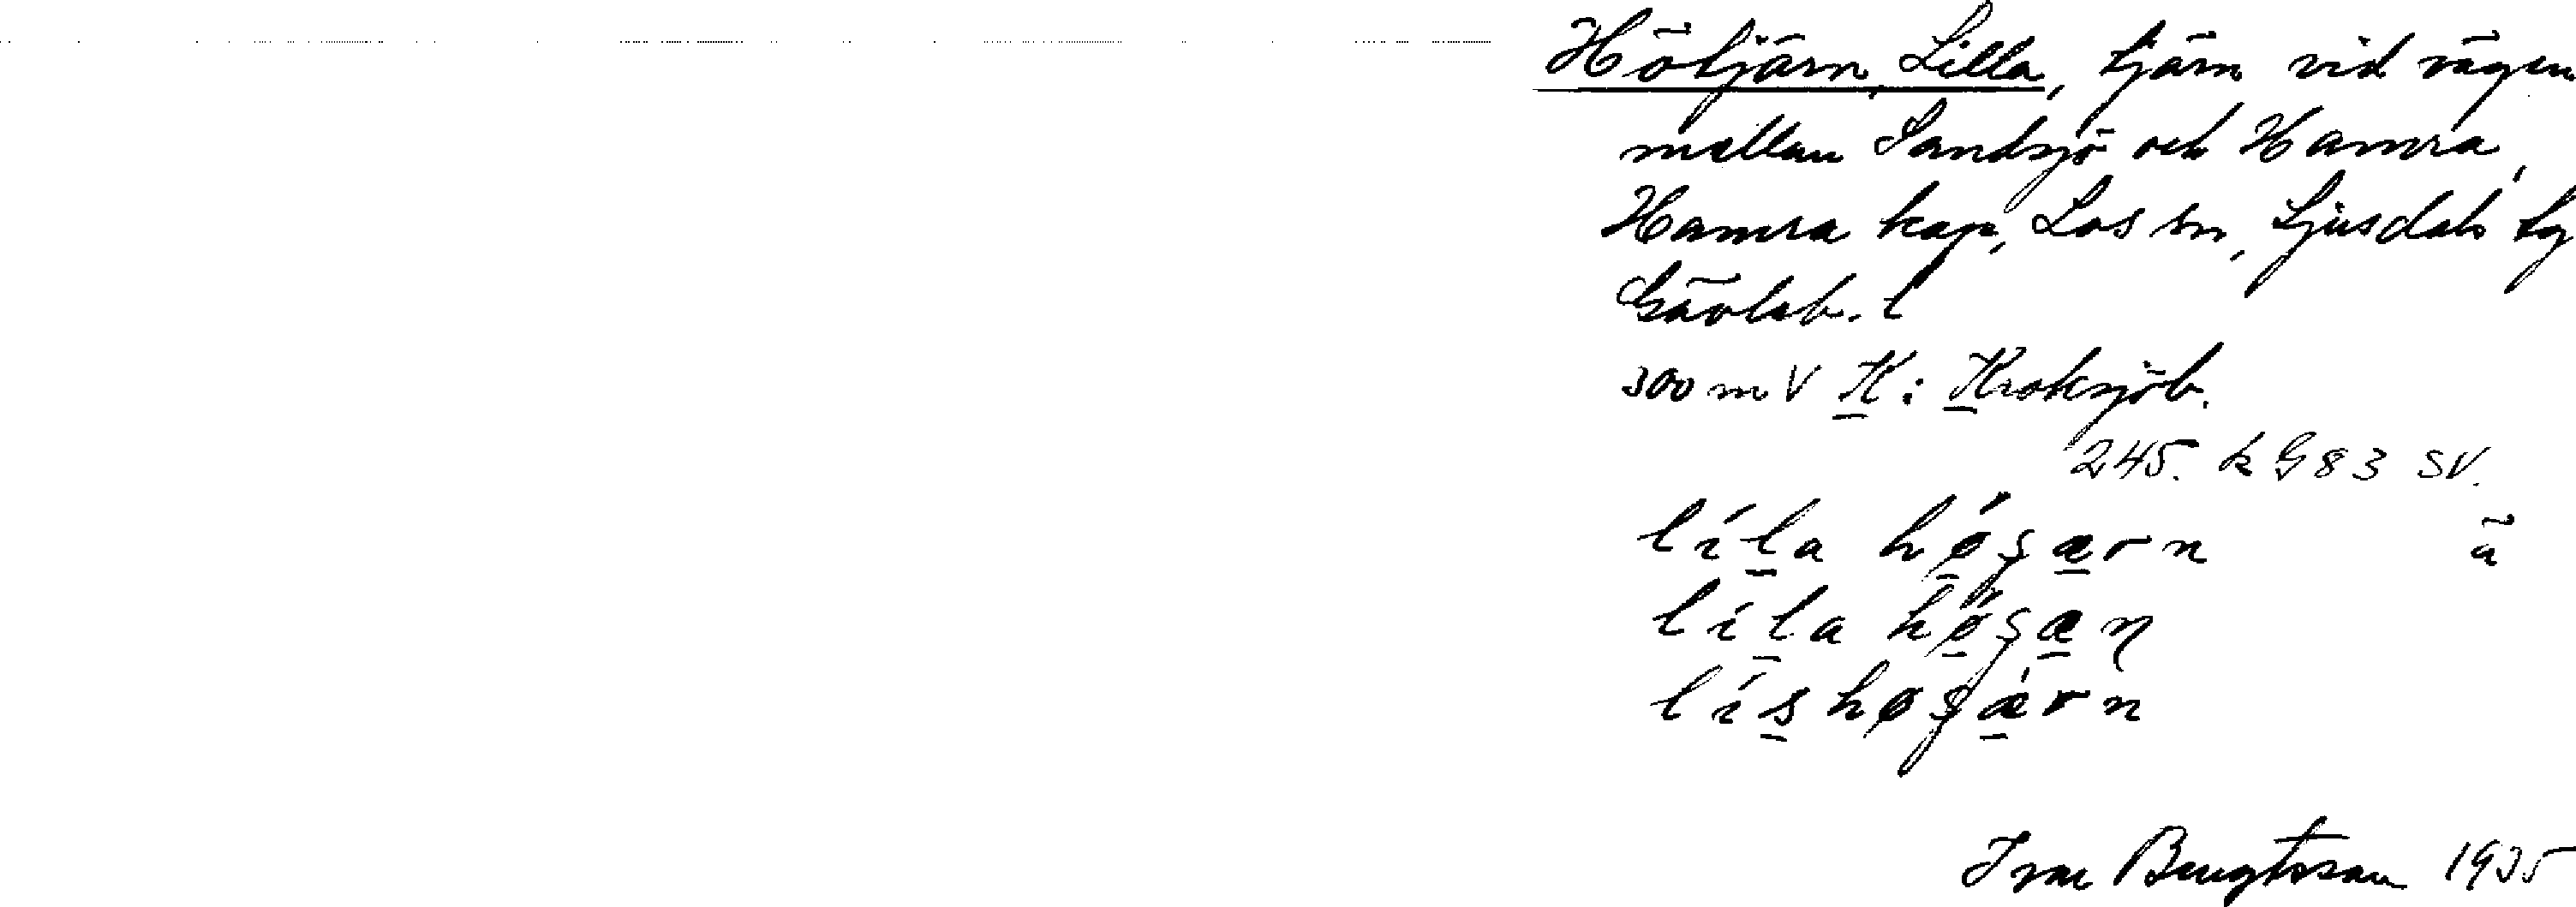 Hötjärn, Lilla, tjärn vid vägen
mellan Sandsjö och Hamra,
Hamra kap, Los sn, Ljusdals tg
Gävleb. l
300 m V K: Kroksjöb.
245. k G 83 SV.
líla høʂærn ä
líla høʂæɳ
líshøʂærn
Ivar Bengtsson 1935